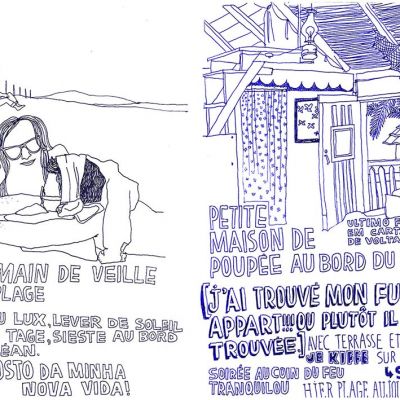 MAIN DE VEILLE
PLAGE
U LUX, LEVER DE SOLEIL
TAGE, SIESTE AU BORD
ÉAN.
OSTO DA MINHA
NOVA VIDA!
PETITE
MAISON DE
POUPÉE AU BORD DU
ULTIMO F
EM CART
DE VOLTA
[J'AI TROUVÉ MON FU
APPART!!! OU PLUTÔT IL
TROUVÉE] AVEC TERRASSE ET
JE KIFFE SUR
SOIRÉE AU COIN DU FEU
TRANQUILOU
HIER PLAGE AUJOU